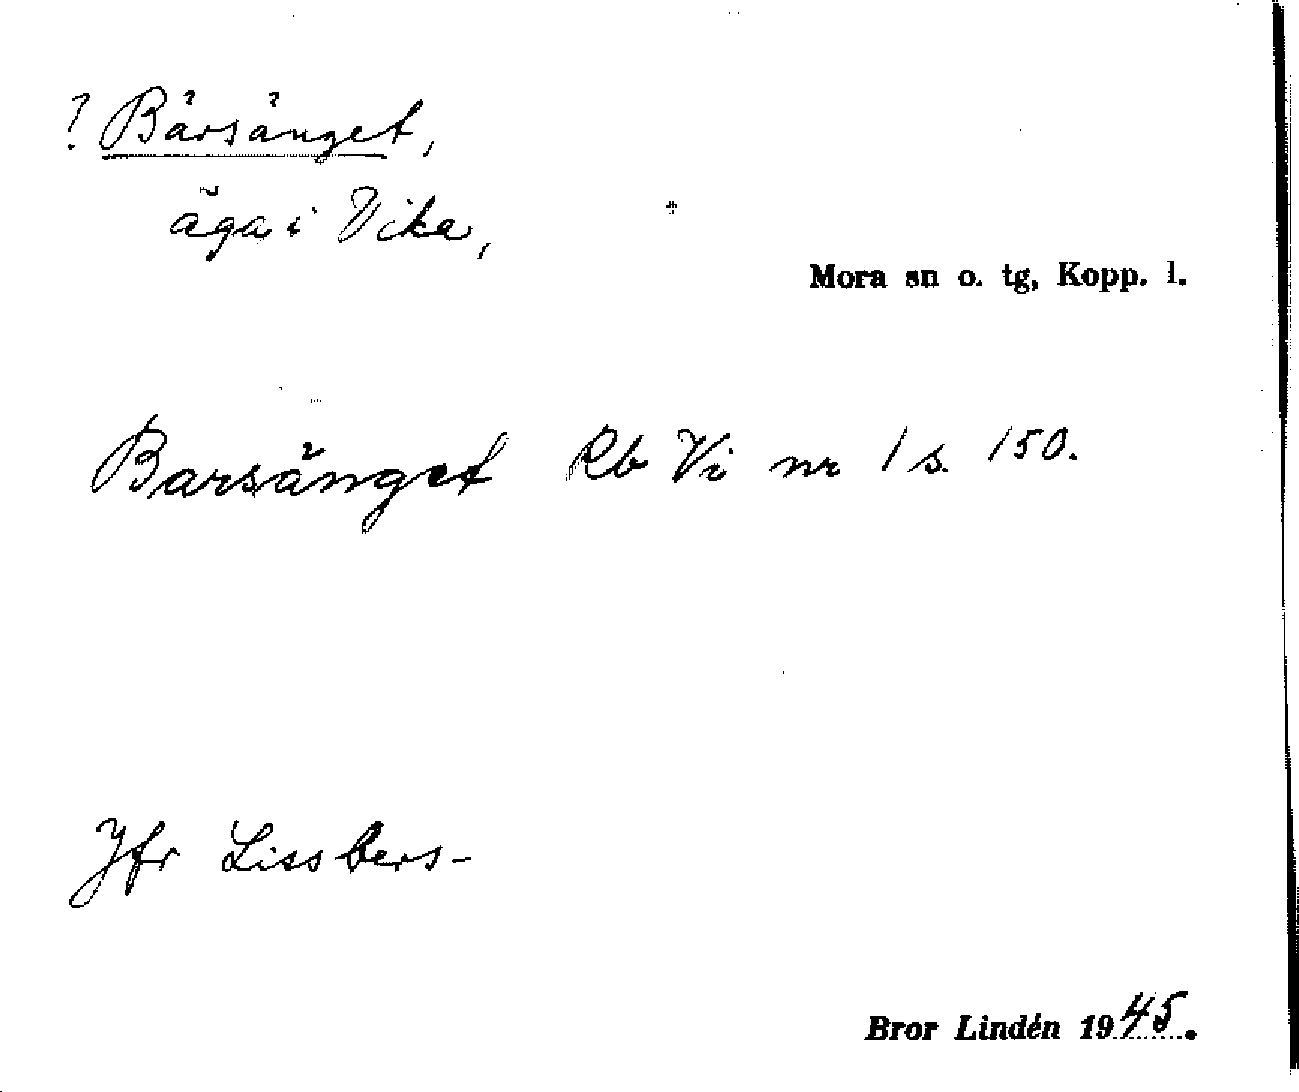 ? Bärsänget,
äga i Vika,
Mora sn o. tg, Kopp. l.
Barsänget Rb Vi nr 1 s. 150.
Jfr Lissbers-
Bror Lindén 1945.